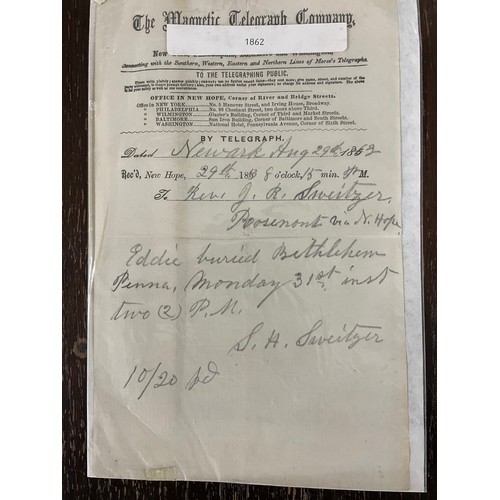 The Magnetic Telegraph Company,
1862
Connecting with the Southern, Western, Eastern and Northern Lines of Morse's Telegraphs.
TO THE TELEGRAPHING PUBLIC.
OFFICE IN NEW HOPE, Corner of River and Bridge Streets.
Office in NEW YORK, No. 5 Hanover Street, and Irving House, Broadway.
" PHILADELPHIA No. 93 Chestnut Street, two doors above Third.
" WILMINGTON Corner of Third and Market Streets.
" BALTIMORE Sun Iron Building, Corner of Baltimore and South Streets.
" WASHINGTON, National Hotel, Pennsylvania Avenue, Corner of Sixth Street.
BY TELEGRAPH.
Dated Newark Aug 29th 1862
Rec'd, New Hope, 29th 186 8 o'clock, 15 min. P M.
To Rev. J. R. Sweitzer,
Rosemont via N. Hope
Eddie buried Bethlehem
Penna, Monday 31st inst
two (2) P.M.
S. H. Sweitzer
10/20 pd